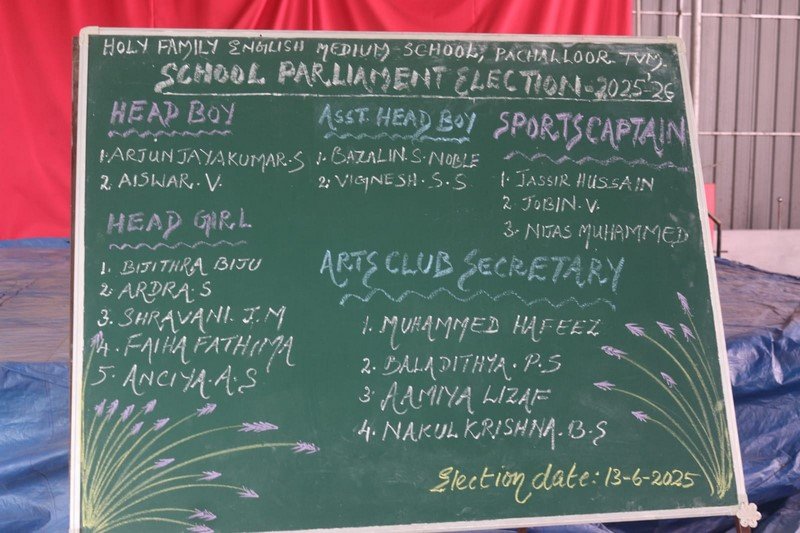 HOLY FAMILY ENGLISH MEDIUM SCHOOL, PACHALLOOR. TVM.
SCHOOL PARLIAMENT ELECTION - 2025-26
HEAD BOY
1. ARJUN JAYAKUMAR. S
2. AISWAR. V.
ASST. HEAD BOY
1. BAZALIN. S. NOBLE
2. VIGNESH. S. S
SPORTS CAPTAIN
1. JASSIR HUSSAIN
2. JOBIN. V.
3. NIJAS MUHAMMED
HEAD GIRL
1. BIJITHRA BIJU
2. ARDRA. S
3. SHRAVANI. J. M
4. FAIHA FATHIMA
5. ANCIYA. A. S
ARTS CLUB SECRETARY
1. MUHAMMED HAFEEZ
2. BALADITHYA. P. S
3. AAMIYA LIZAF
4. NAKUL KRISHNA. B. S
Election date: 13-6-2025